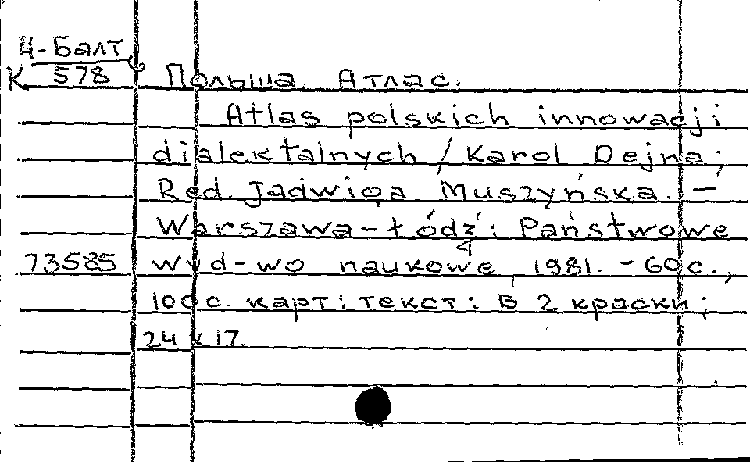 Ц-Балт
К 578 Польша. Атлас.
Atlas polskich innowacji
dialektalnych / Karol Dejna;
Red. Jadwiga Muszyńska. –
Warszawa–Łódź: Państwowe
73585 wyd-wo naukowe, 1981. – 60 с.,
100 с. карт: текст: в 2 краски;
24 x 17.